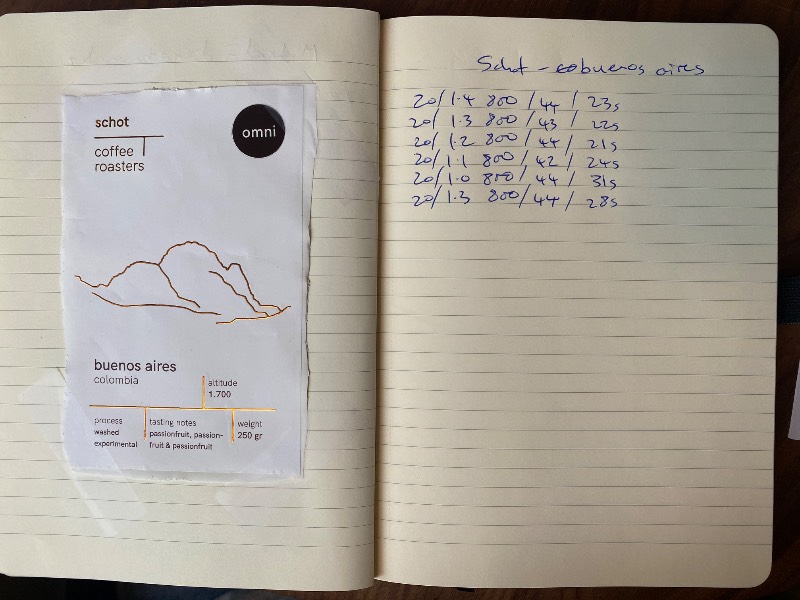 schot
omni
coffee
roasters
buenos aires
colombia
altitude
1.700
process
washed
experimental
tasting notes
passionfruit, passion-
fruit & passionfruit
weight
250 gr
Schot - buenos aires
20/ 1.4 800 / 44 / 23s
20/ 1.3 800 / 43 / 22s
20/ 1.2 800 / 44 / 21s
20/ 1.1 800 / 42 / 24s
20/ 1.0 800 / 44 / 31s
20/ 1.3 800 / 44 / 28s